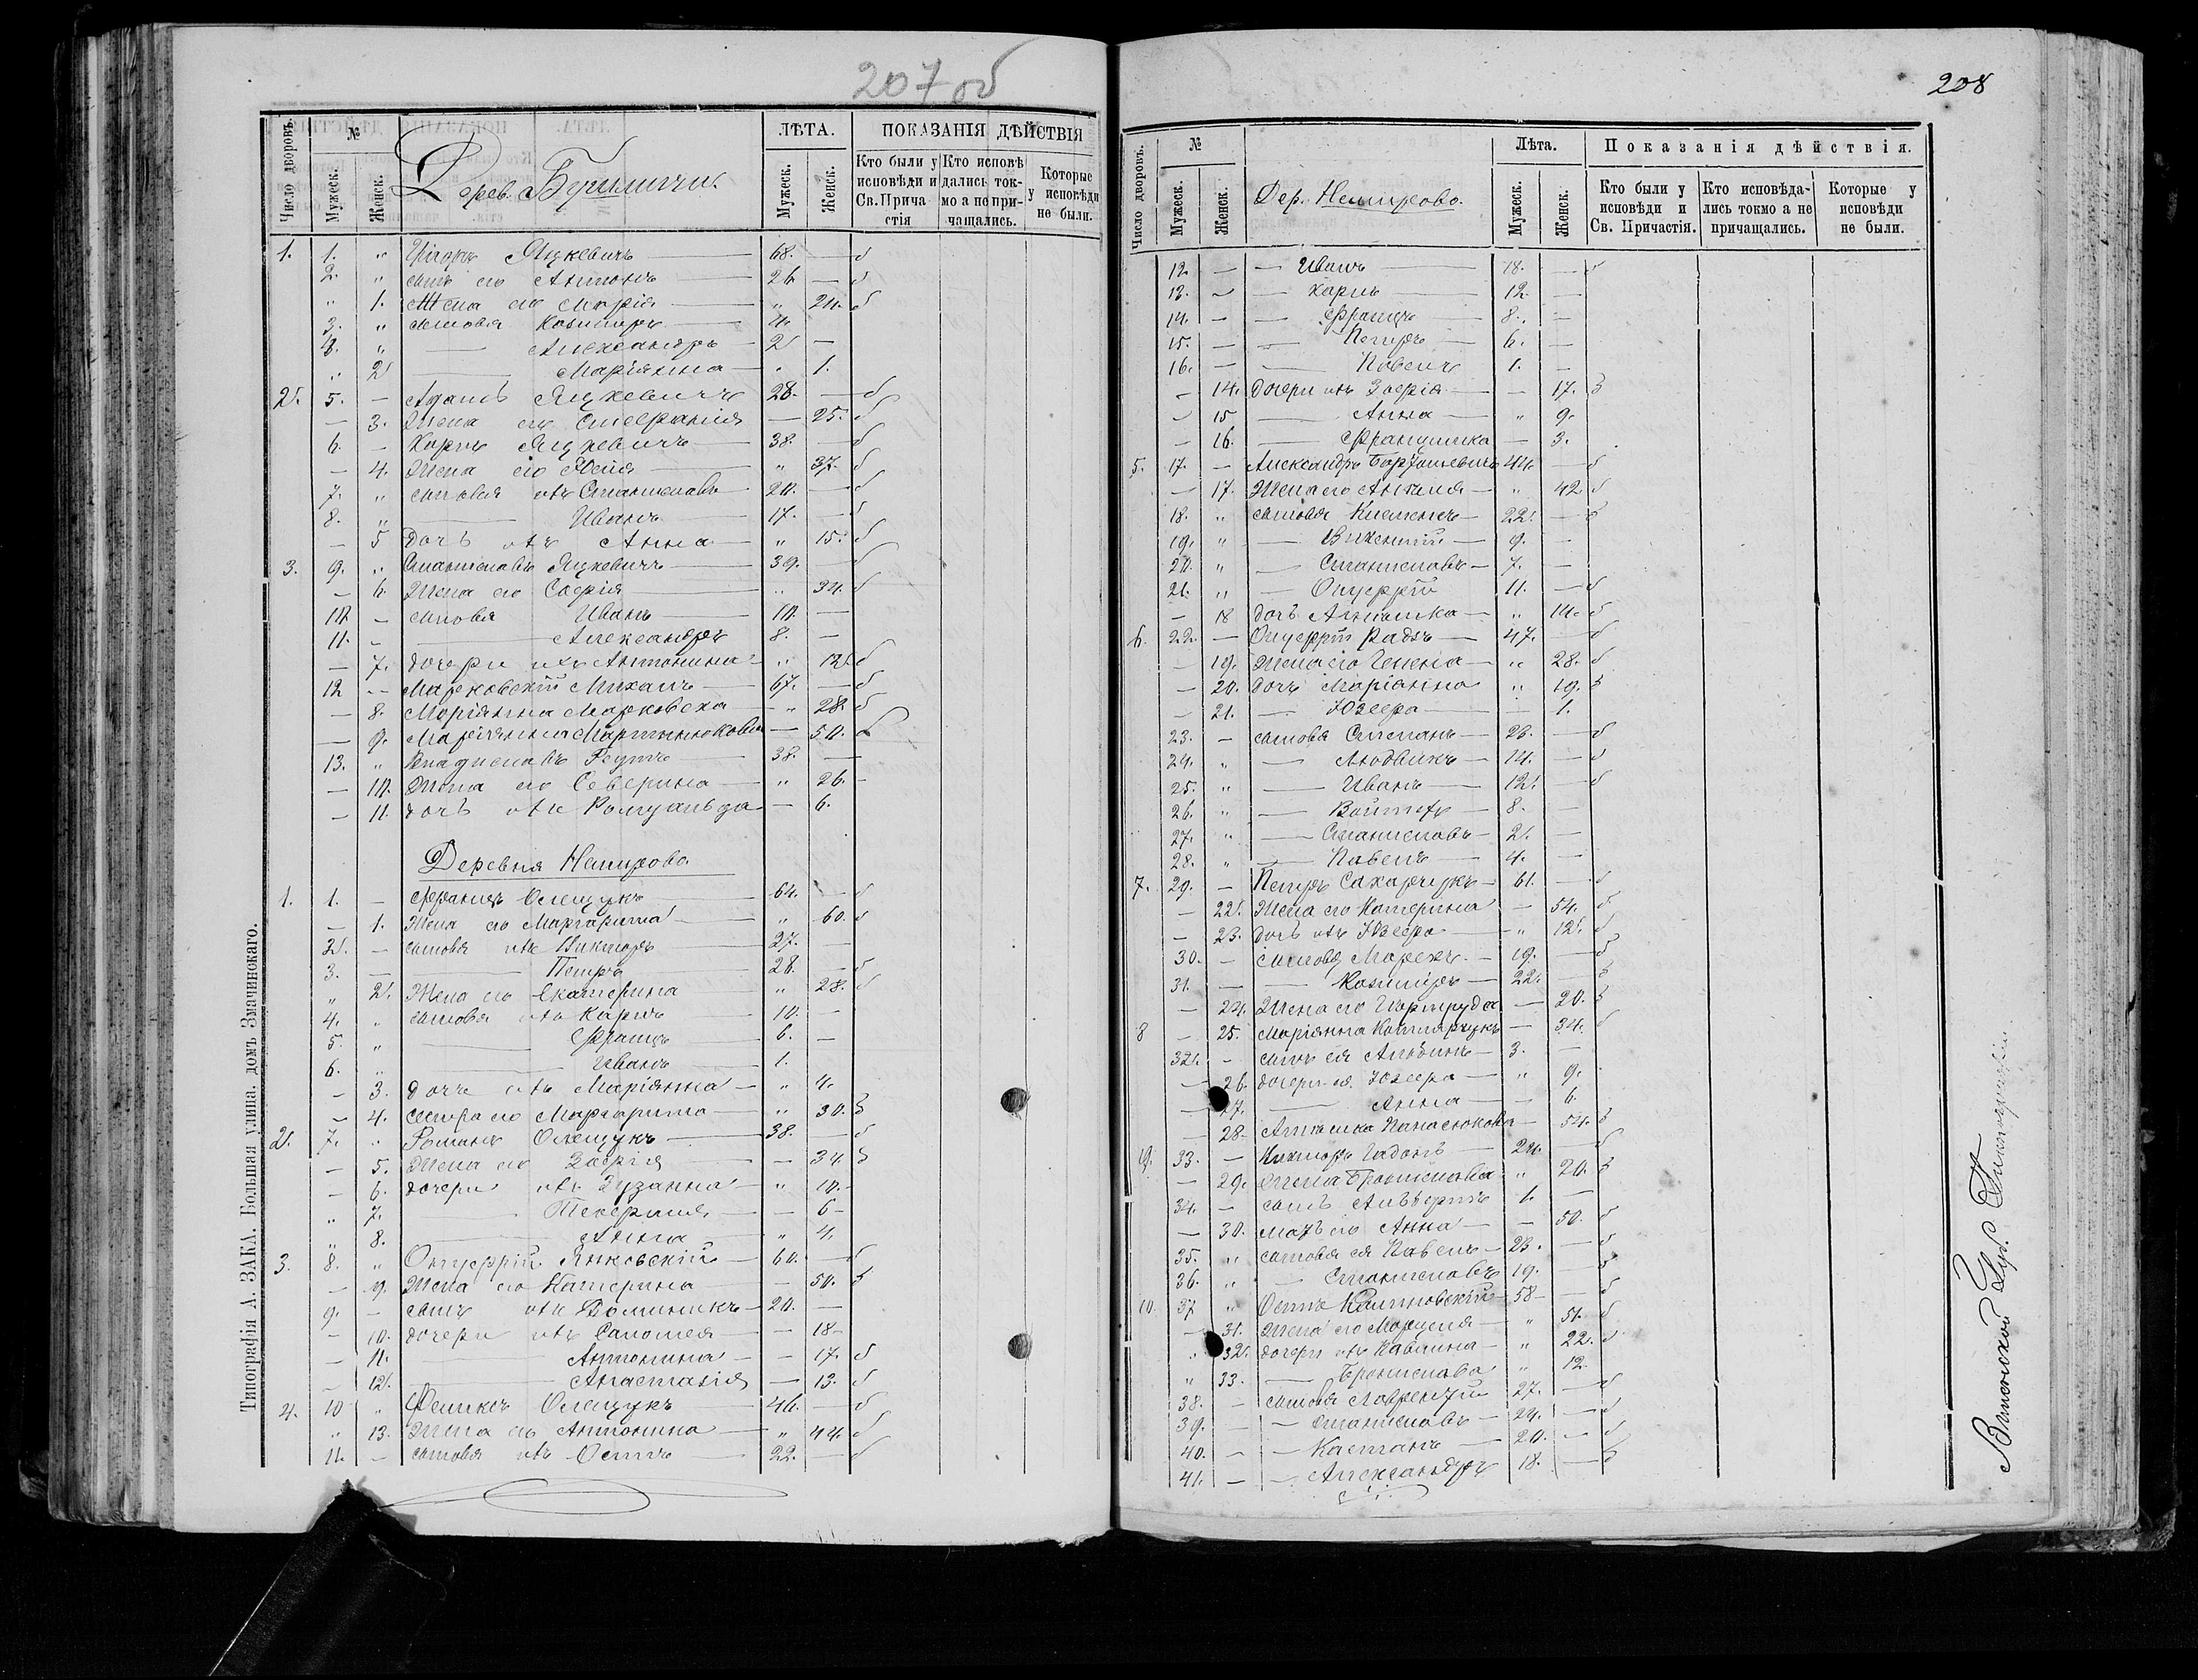 207 об
Число дворовъ.
№
Мужеск.
Женск.
Дерев. Бучиличи.
ЛѢТА.
Мужеск.
Женск.
ПОКАЗАНІЯ ДѢЙСТВІЯ
Кто были у исповѣди и Св. Прича стія
Кто исповѣ дались ток- мо а не при- чащались.
Которые у исповѣди не были.
1. 1. " Яцкевичъ 68. —
2. " сынъ его Антонъ 26 —
" 1. Жена его Марія " 24.
3. " сыновья Казимиръ 4.
4. " — Александръ 2 —
" 2 — Маріянна " 1.
2. 5. — Адамъ Яцкевичъ 28. —
— 3. Жена его Стефанія — 25.
6. — Карпъ Яцкевичъ 38. —
— 4. Жена его " 37.
7. " сыновья ихъ Станиславъ 20. —
8. " — Иванъ 17. —
— 5 Дочь ихъ Анна " 15.
3. 9. " Станиславъ Яцкевичъ 39. —
— 6. Жена его Софія " 34.
10. — сыновья Иванъ 10. —
11. — — Александръ 8. —
— 7. дочери ихъ Антонина " 12.
12 — Марковскій Михаилъ 67. —
— 8. Маріянна Марковска " 28.
— 9. Маріянна Мартынюкова — 50.
13. " Владиславъ Реутъ 38. —
— 10. Жена его Северина " 26. —
— 11. дочь ихъ Ромуальда — 6.
Деревня Немирово
1. 1. — Францъ Олещукъ 64. —
— 1. Жена его Маргарита " 60.
2. — сыновья ихъ Викторъ 27. —
3. — — Петръ 28. —
" 2. Жена его Екатерина " 28.
4. " сыновья ихъ Карпъ 10. —
5. " — Францъ 6. —
6. " — Иванъ 1.
— 3. дочь ихъ Маріянна " 4.
— 4. Сестра его Маргарита " 30.
2. 7. " Романъ Олещукъ 38. —
— 5. Жена его Зофія — 34.
— 6. дочери ихъ Зузанна " 10. —
" 7. — Текерция — 6 —
" 8. — Анна " 4.
3. 8. " Онуфрій Янковскій 60. —
— 9. Жена его Катерина — 50.
9. — сынъ ихъ Доминикъ 20. —
— 10. дочери ихъ Саломея — 18 —
— 11. — Антонина — 17.
— 12. — Анастазія — 13.
4. 10 " Феликсъ Олещукъ 46. —
" 13. Жена его Антонина " 44.
11. — сыновья ихъ Осипъ 22. —
Типографія А. ЗАКА. Большая улица, домъ Змачинскаго.
208
Число дворовъ.
№
Мужеск.
Женск.
Дер. Немирово.
Лѣта.
Мужеск.
Женск.
Показанія дѣйствія.
Кто были у исповѣди и Св. Причастія.
Кто исповѣда- лись токмо а не причащались.
Которые у исповѣди не были.
12. — — Иванъ 18. —
13. — — Карпъ 12. —
14. — — Францъ 8. —
15. — — Петръ 6. —
16. — — Павелъ 1. —
— 14. дочери ихъ Зофія — 17.
— 15 — Анна " 9.
— 16. — Францишка — 3.
5. 17. — Александръ 44. —
— 17. Жена его " 42
18. " сыновья Климентъ 22. —
19. " — Викентій 9. —
20. " — Станиславъ 7. —
21. " — Онуфрій 11. —
— 18 дочь " 14.
6. 22. — Онуфрій 47. —
— 19. Жена его " 28.
— 20. дочь Маріанна " 19.
— 21. — Юзефа — 1.
23. — сыновья Степанъ 26. —
24. " — Людвикъ 14. —
25. " — Иванъ 12. —
26. " — 8. —
27. " — Станиславъ 2. —
28. " — Павелъ 4. —
7. 29. — Петръ Сахарчукъ 61. —
— 22. Жена его Катерина — 54.
— 23. дочь ихъ Юзефа " 12.
30. — сыновья 19. —
31. — — Казимиръ 22. —
— 24. Жена его Гертруда — 20.
8 — 25. Маріянна Котлярчукъ — 34.
32. — сынъ ея Альбинъ 3. —
— 26. дочери ея Юзефа " 9.
— 27. — Анна — 6.
— 28. Панасюкова — 54.
9. 33. — Викторъ Гадонъ 24. —
— 29. Жена Брониславa " 20.
34. — сынъ Альбертъ 1. —
— 30. мать его Анна — 50.
35. " сыновья ея Павелъ 23. —
36. " — Станиславъ 19. —
10. 37 " Осипъ 58 —
— 31. Жена его " 51.
" 32. дочери ихъ Павлина " 22.
" 33. — Бронислава " 12.
38. — сыновья Лаврентій 27. —
39. — — Станиславъ 24. —
40. — — Каетанъ 20. —
41. — — Александръ 18. —